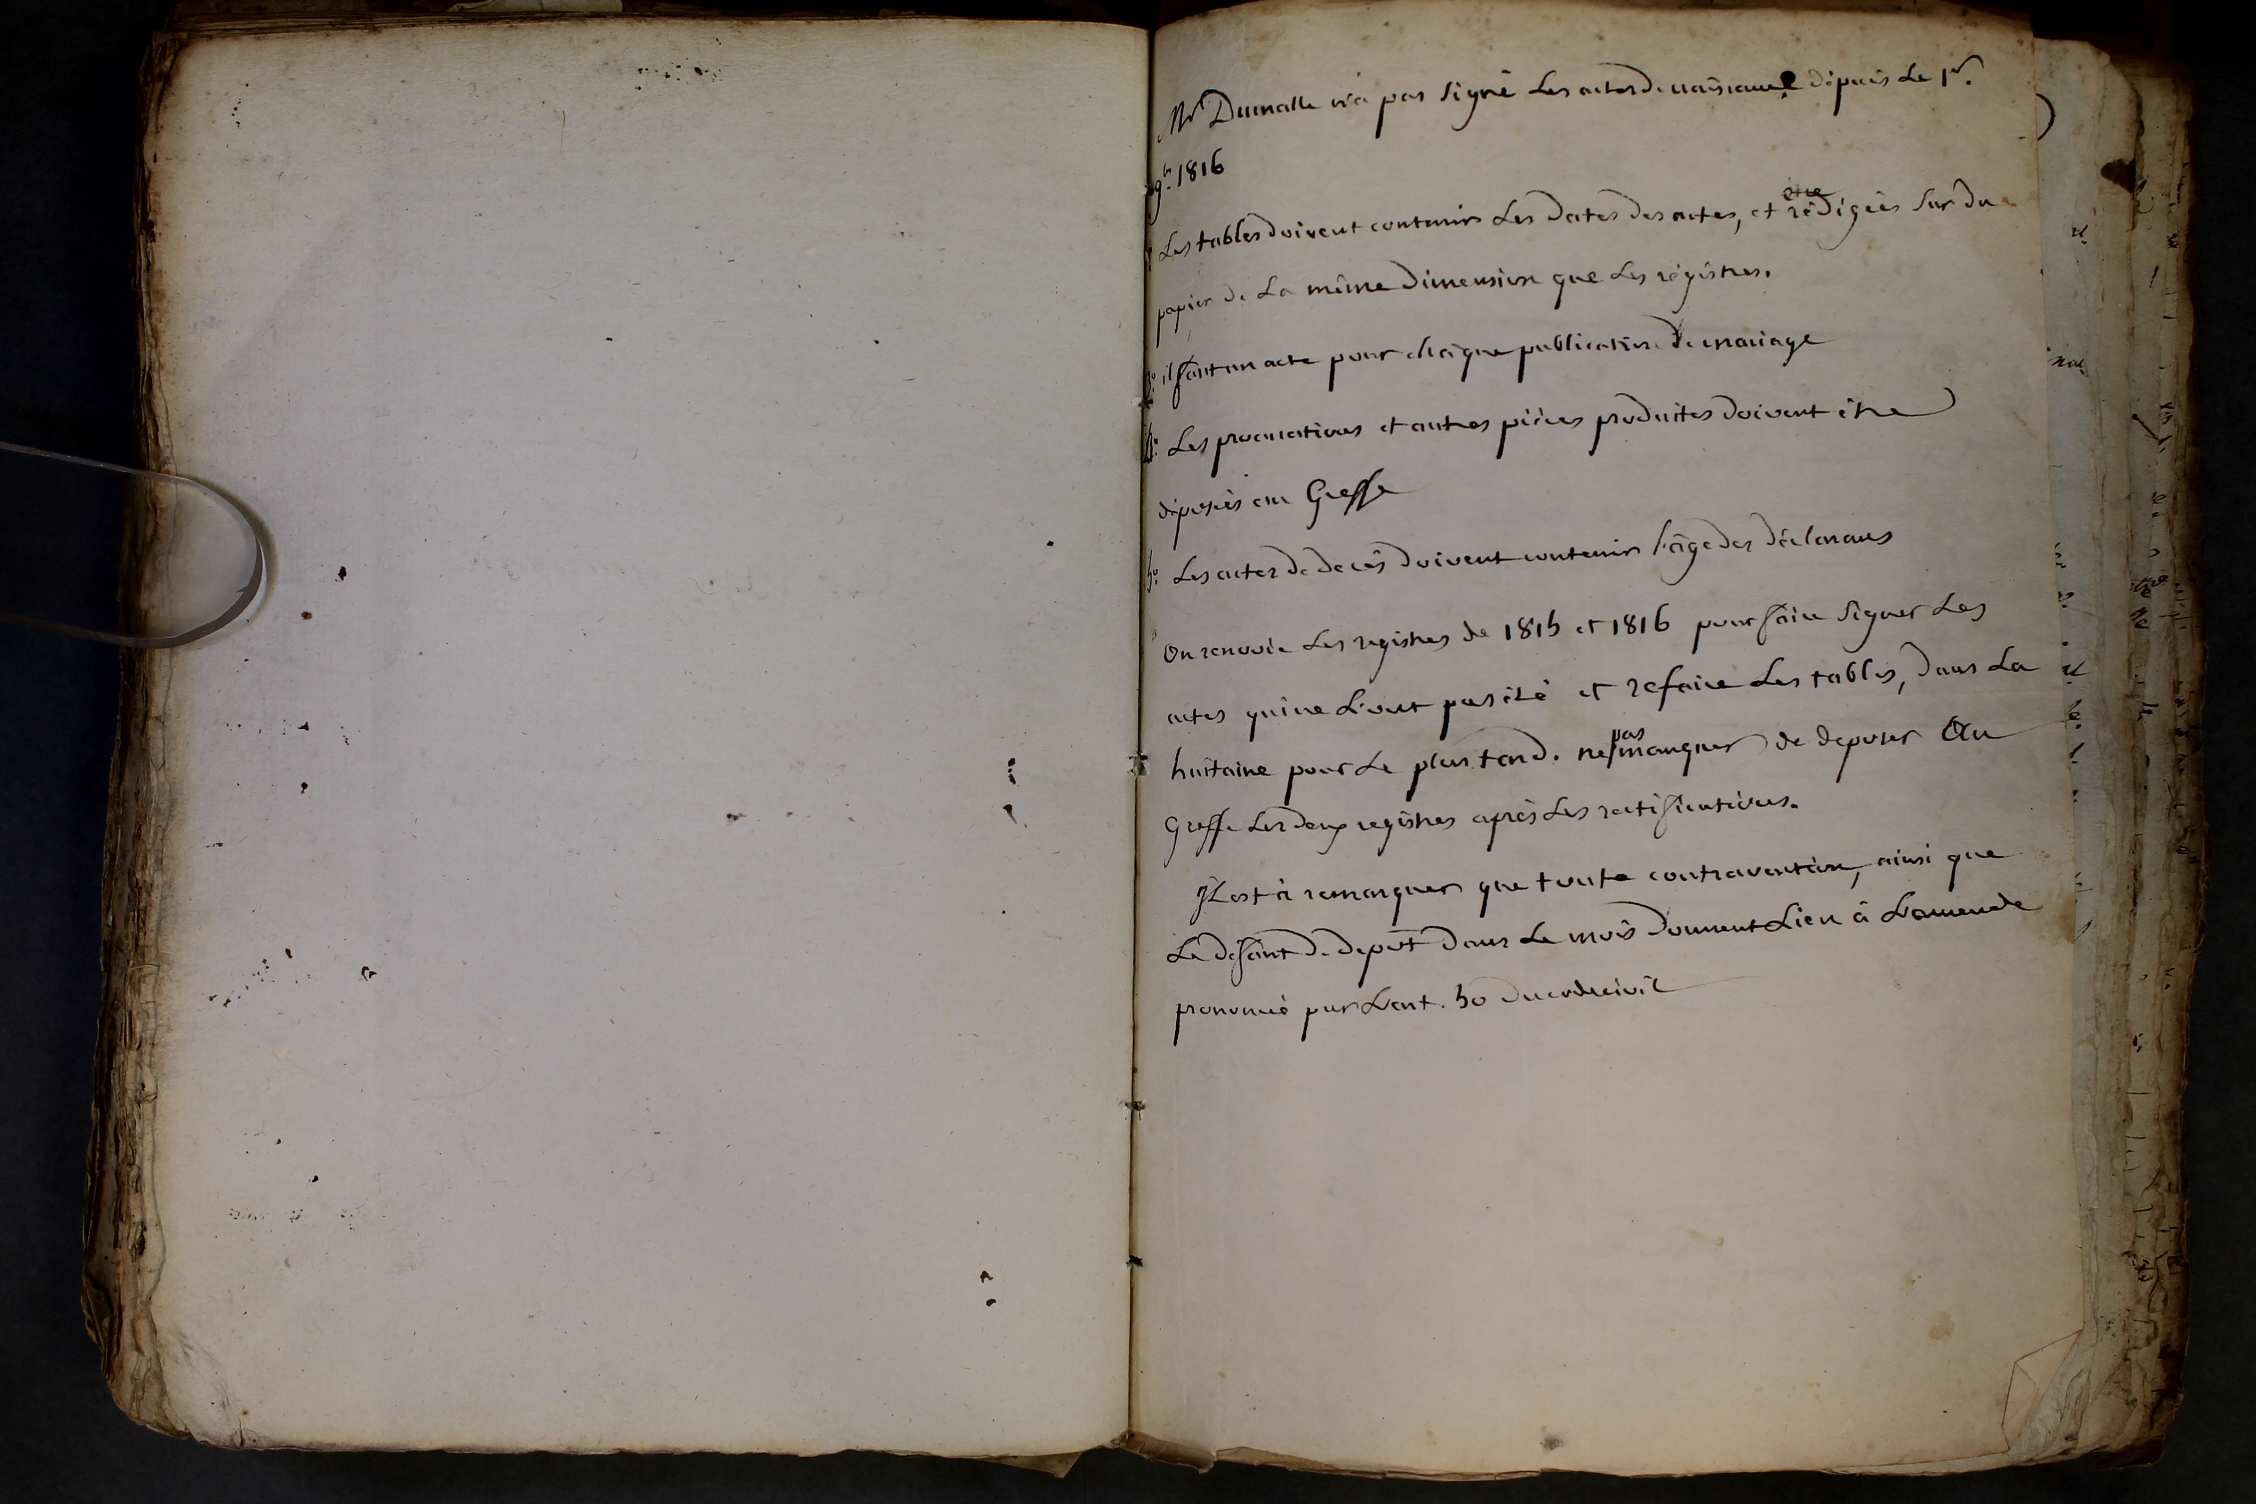 Mr Dumalle n'a pas signé Les actes de naissance dépuis Le 1er.
9bre 1816
Les tables doivent contenir Les Dates des actes, et être rédigées sur du
papier de La même Dimension que Les régistres.
3º. il faut un acte pour chaque publication de mariage
4º. Les procurations et autres pièces produites doivent être
déposées au Greffe
5º. Les actes de decès doivent contenir l'âge des déclarans
On renvoie Les registres de 1815 et 1816 pour faire signer Les
actes qui ne L'ont pas été et refaire Les tables, dans La
huitaine pour Le plus tard. ne pas manquer de deposer Au
Greffe Les deux registres après Les rectifications.
Il est à remarquer que toute contravention, ainsi que
Le defaut de depôt dans Le mois donnent Lieu à L'amende
prononcé par L'art. 50 du code civil